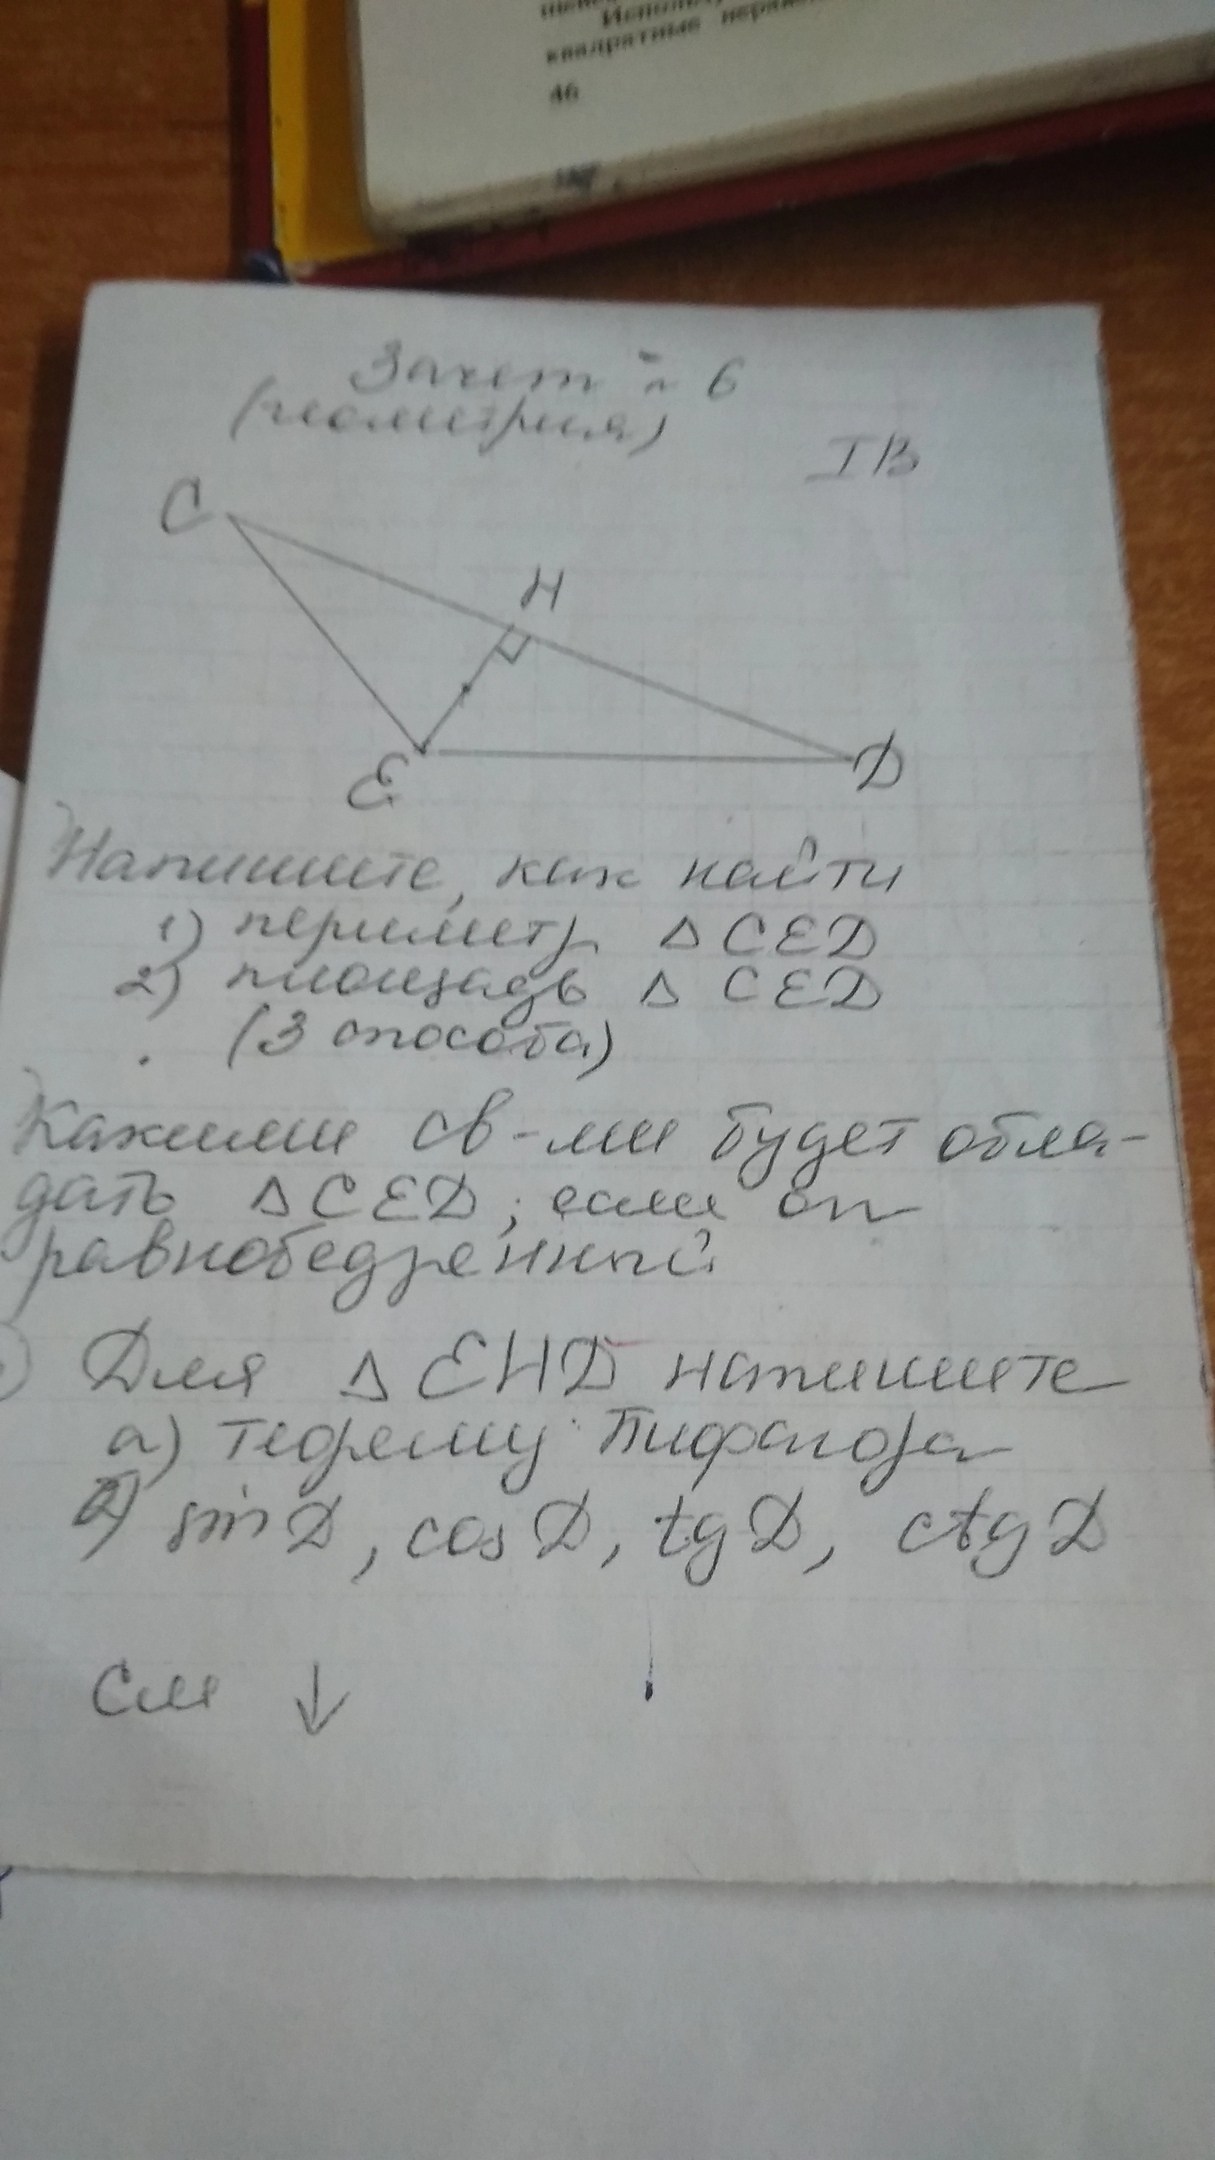 Использу
квадратные нерав
46
Зачет № 6
(геометрия)
I В
C
H
E
D
Напишите, как найти
1) периметр Δ CED
2) площадь Δ CED
(3 способа)
Какими св-ми будет обла-
дать Δ CED, если он
равнобедренный
Для Δ EHD напишите
а) теорему Пифагора
2) sin D, cos D, tg D, ctg D
См ↓